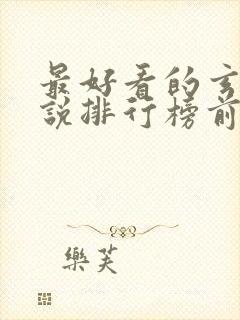 最好看的玄
說排行榜前
樂芙